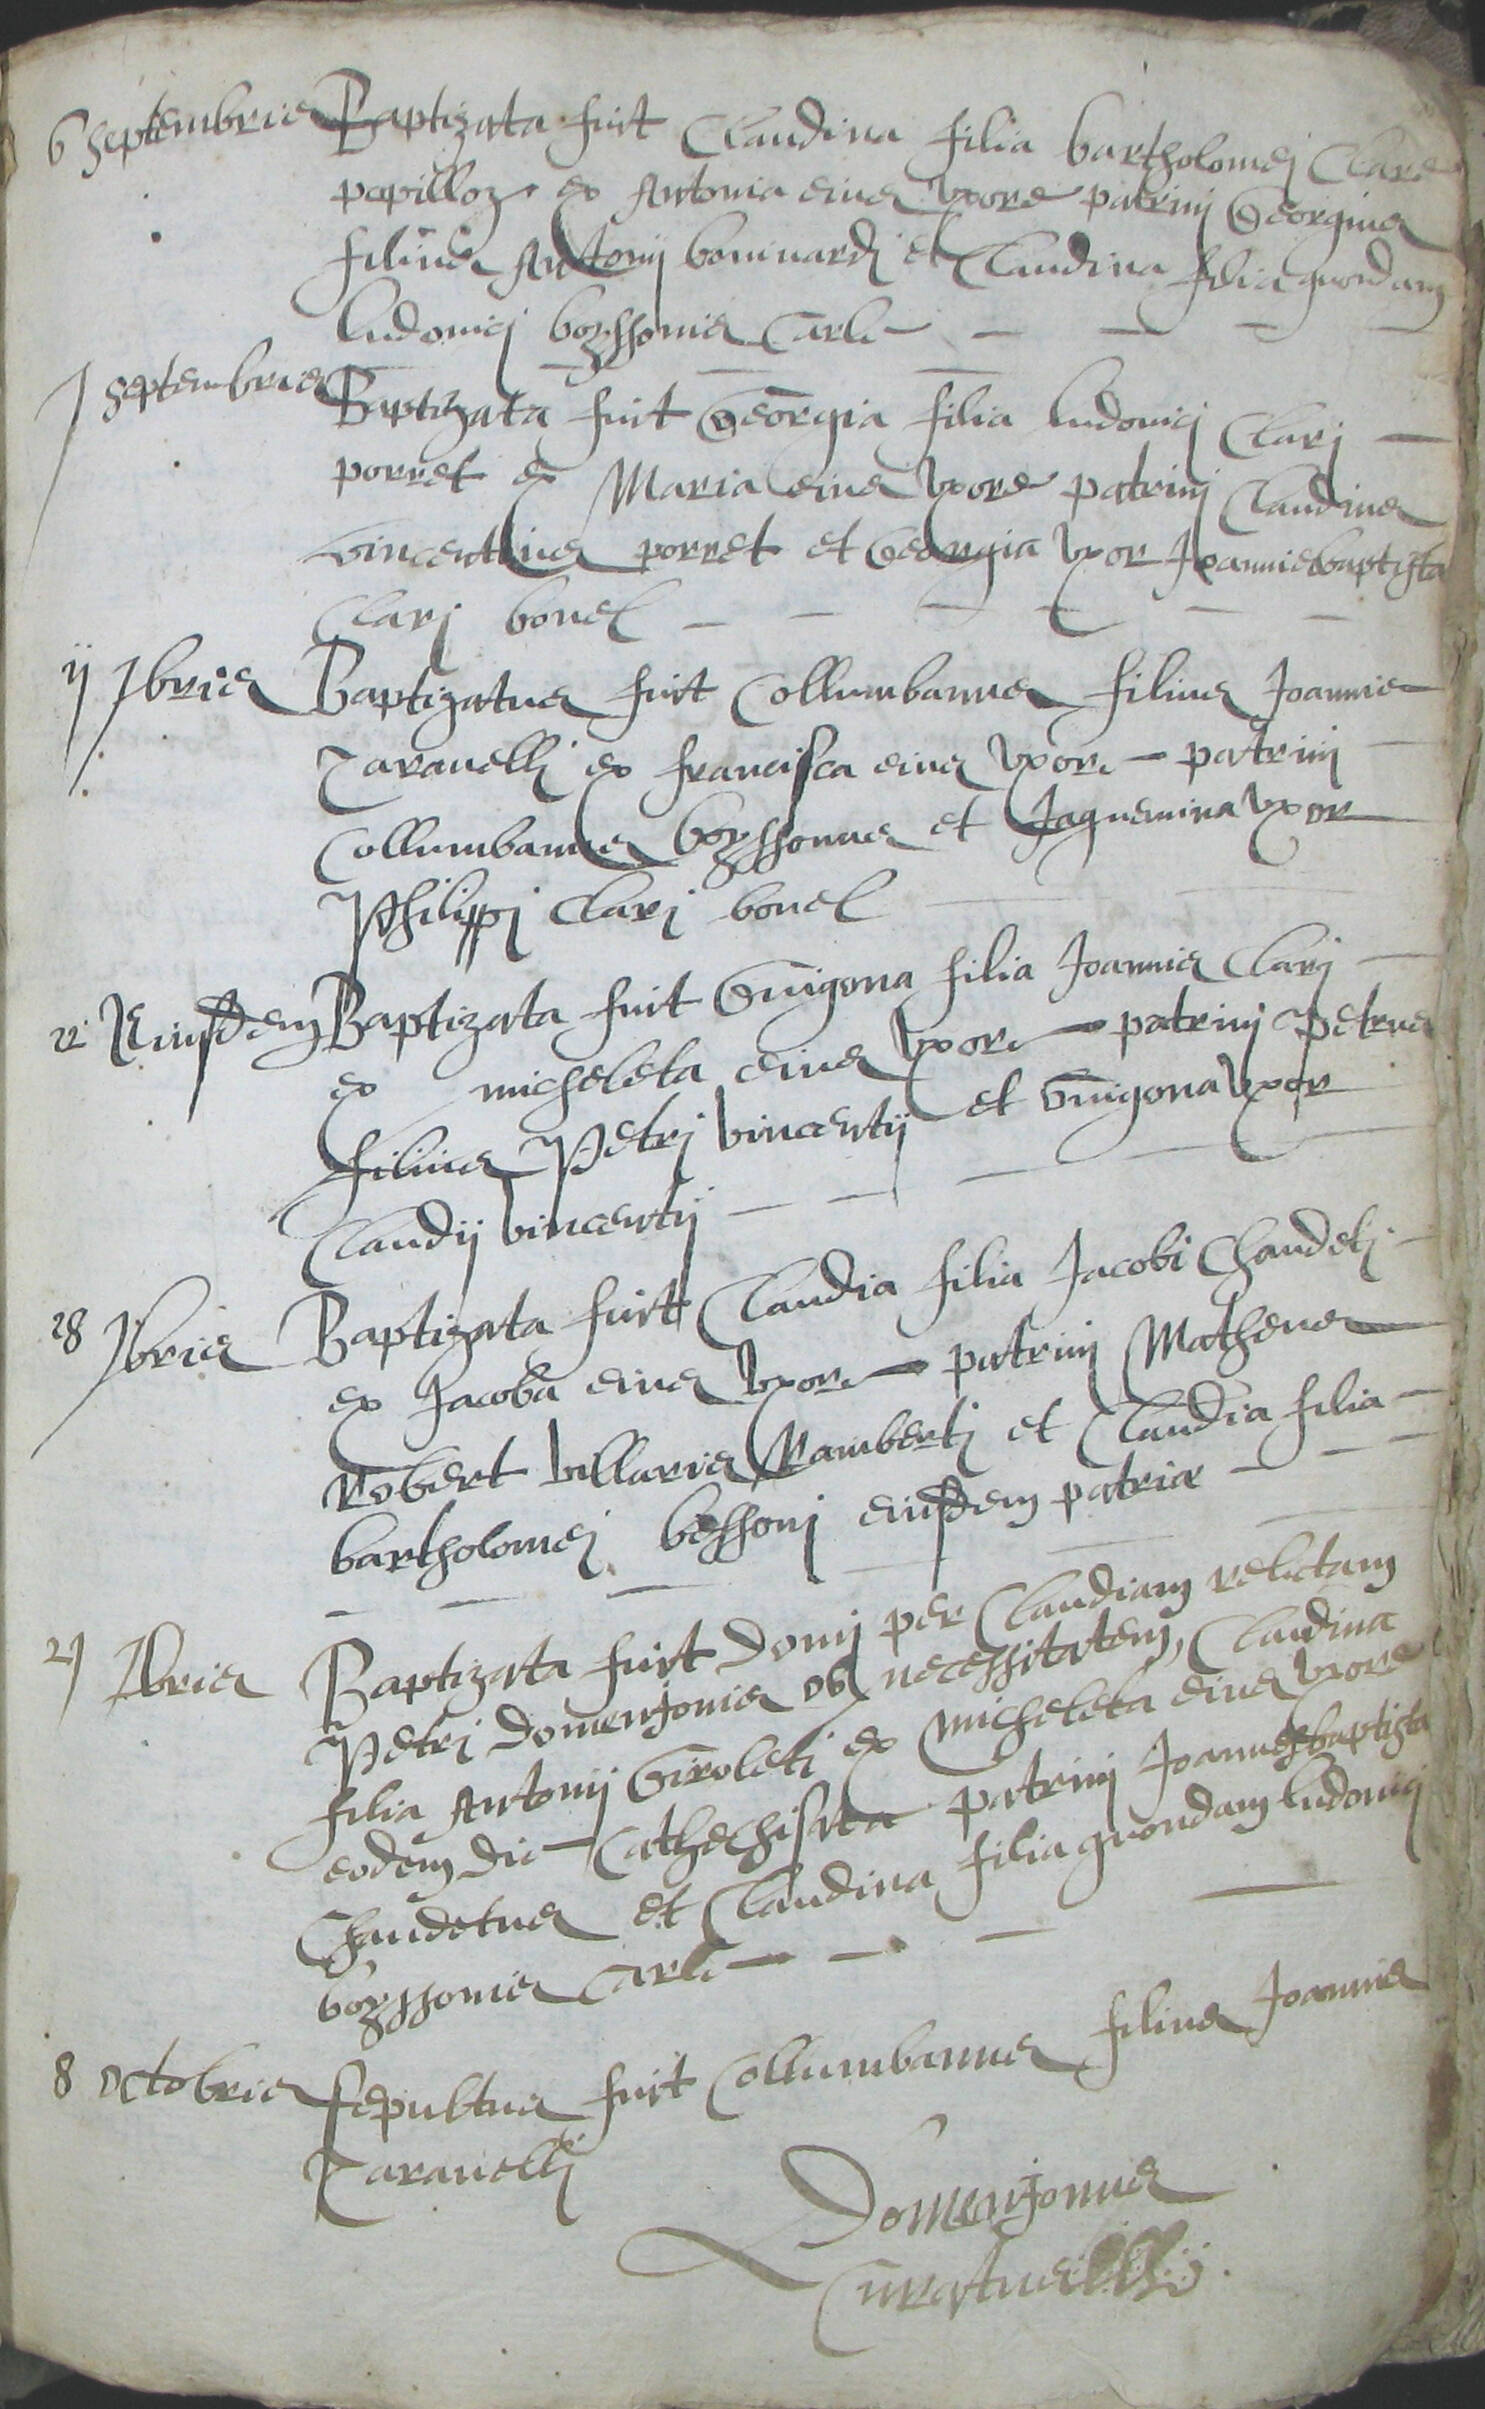 6 Septembris Baptizata fuit Claudina filia bartholomej Clare
papilloz ex Antonia eius uxore patrinj Georgius
filius Antonij bominardj et Claudina filia quondam
ludovicj bozssonis Carle
7 Septembris Baptizata fuit Georgia filia ludovicj Clarj
porret ex Maria eius uxore patrinj Claudius
vincentius porret et Georgia uxor Joannisbaptista
Clarj bouel
ij 7bris Baptizatus fuit Collumbanus filius Joannis
Taravellj ex francisca eius uxore patrinj
Collumbanus bozssonus et Jaquemina uxor
Philippj Clarj bouel
22 Eiusdem Baptizata fuit Guigona filia Joannis Clarj
ex micheleta eius uxore patrinj Petrus
filius Petrj vincentij et Guigona uxor
Claudij vincentij
28 7bris Baptizata fuit Claudia filia Jacobi Chaudetj
ex Jacoba eius uxore patrinj Matheus
Robert villaris Rambertj et Claudia filia
bartholomej bessonj eiusdem patriæ
27 7bris Baptizata fuit domj per Claudiam relictam
Petrj Domenjonis ob necessitatem, Claudina
filia Antonij Giroletj ex micheleta eius uxore
eodem die Cathechisata patrinj Joannesbaptista
Chaudetus et Claudina filia quondam ludovicj
bozssonis Carle
8 Octobris Sepultus fuit Collumbanus filius Joannis
Taravellj
Domenjonus
Curatus